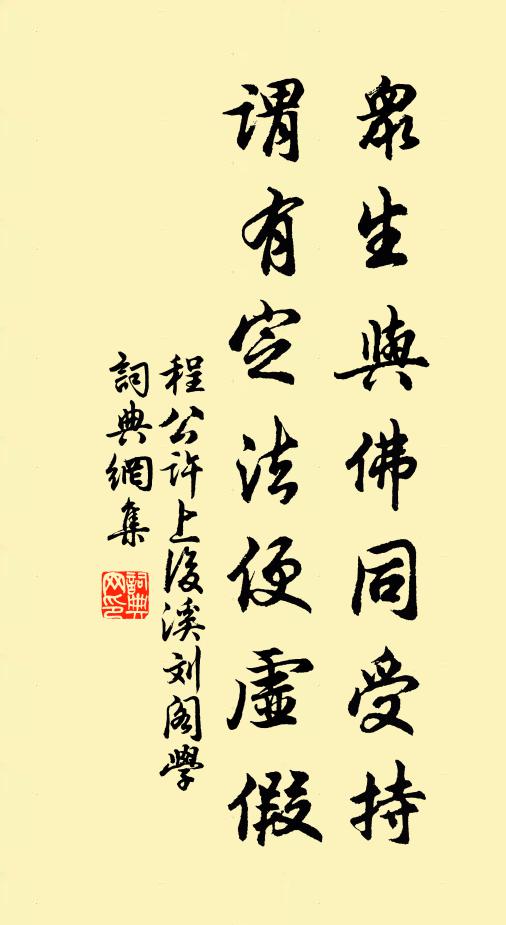 眾生與佛同受持
謂有定法便虛假
程公許上後溪刘阁學
詞典網集
詞典网印